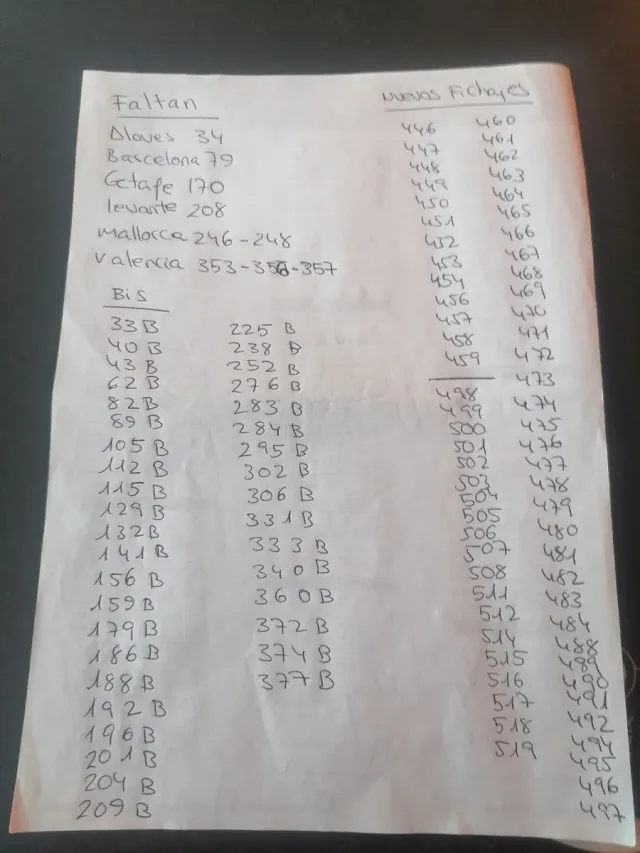 Faltan
Alaves 34
Barcelona 79
Getafe 170
levante 208
mallorca 246-248
valencia 353-356-357
Bis
33 B
40 B
43 B
62 B
82 B
89 B
105 B
112 B
115 B
129 B
132 B
141 B
156 B
159 B
179 B
186 B
188 B
192 B
196 B
201 B
204 B
209 B
225 B
238 B
252 B
276 B
283 B
284 B
295 B
302 B
306 B
331 B
333 B
340 B
360 B
372 B
374 B
377 B
Nuevos Fichajes
446
447
448
449
450
451
452
453
454
456
457
458
459
498
499
500
501
502
503
504
505
506
507
508
511
512
514
515
516
517
518
519
460
461
462
463
464
465
466
467
468
469
470
471
472
473
474
475
476
477
478
479
480
481
482
483
484
488
489
490
491
492
494
495
496
497